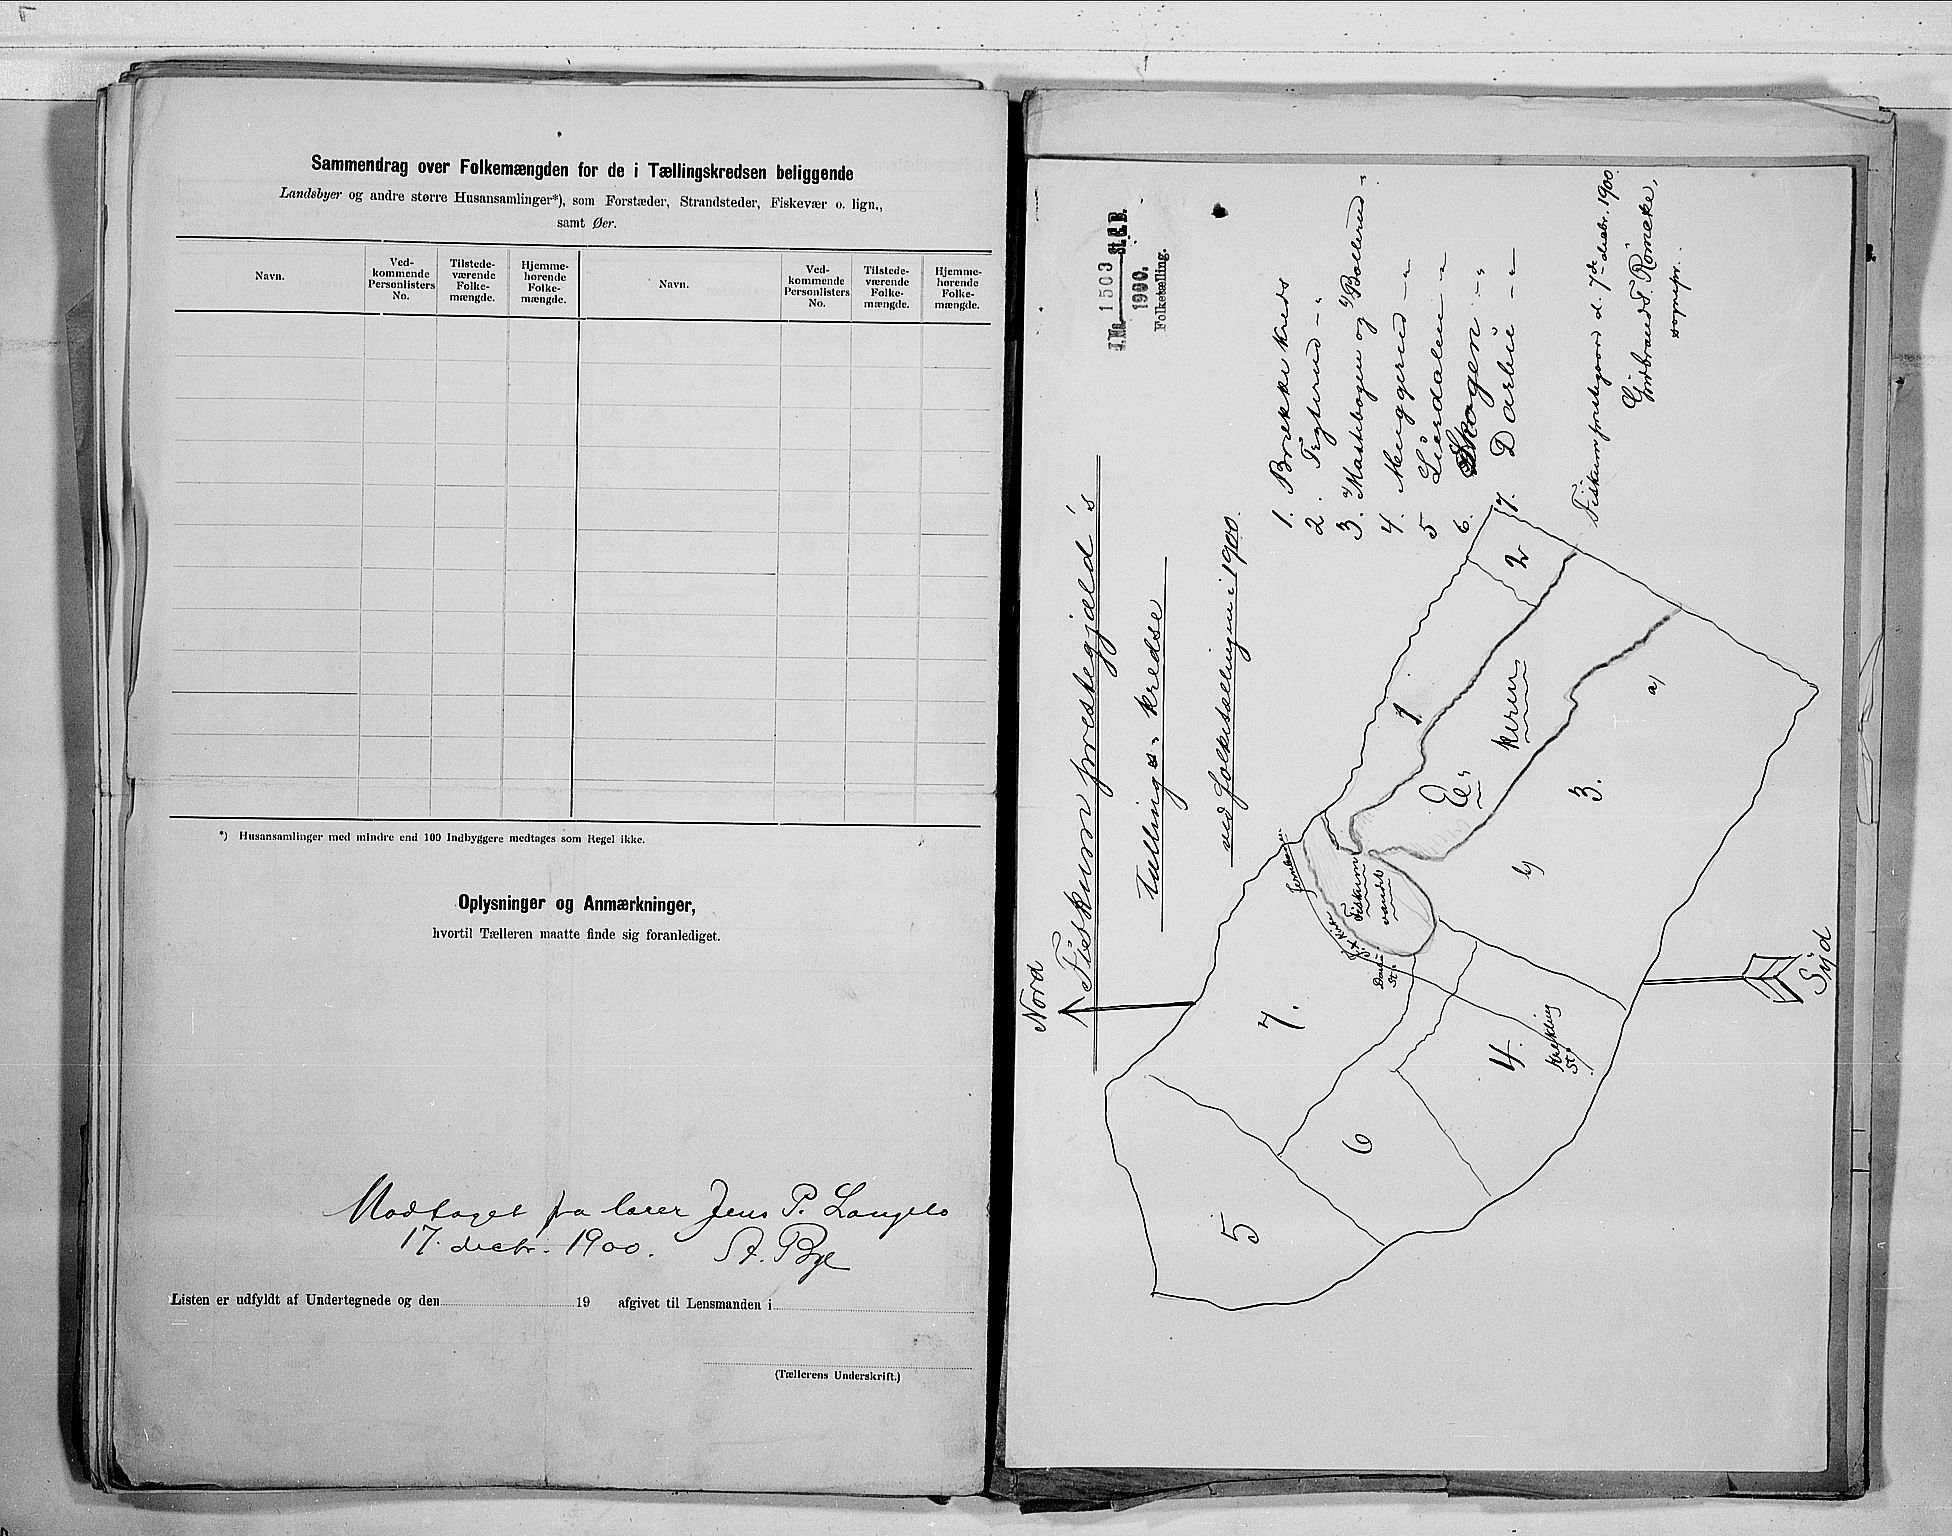 Sammendrag over Folkemængden for de i Tællingskredsen beliggende
Landsbyer og andre større Husansamlinger*), som Forstæder, Strandsteder, Fiskevær o. lign.,
samt Øer.
Navn.
Ved-
kommende
Personlisters
No.
Tilstede-
værende
Folke-
mængde.
Hjemme-
hørende
Folke-
mængde.
Navn.
Ved-
kommende
Personlisters
No.
Tilstede-
værende
Folke-
mængde.
Hjemme-
hørende
Folke-
mængde.
*) Husansamlinger med mindre end 100 Indbyggere medtages som Regel ikke.
Oplysninger og Anmærkninger,
hvortil Tælleren maatte finde sig foranlediget.
Modtaget fra lærer Jens P. Langelo
17. decbr. 1900. St. Bye
Listen er udfyldt af Undertegnede og den 19 afgivet til Lensmanden i
(Tællerens Underskrift.)
J.No. 1503 St.C.B.
1900.
Folketælling.
Fiskum prestegjæld's
tællings-kredse
ved folketællingen i 1900.
1. Brekke kreds
2. Teglerud -"-
3. a) Mastebogen og b) Bollerud -"-
4. Meggerud -"-
5 Lierdalen -"-
6. Skogen -"-
7. Darbu -"-
Fiskum prestegaard d. 7de decbr. 1900
Gudbrand T. Römcke,
sognepr.
Nord
Syd
1
2
3.
a)
b)
4.
5
6
7.
Ee-
kern
Fiskum
vandet
Jernbanen
Darbu
St.
Krekling
St.